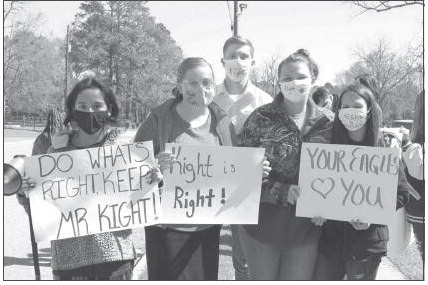 DO WHATS
RIGHT. KEEP
MR KIGHT!!
Kight is
Right!
YOUR EAGLES
♡ YOU